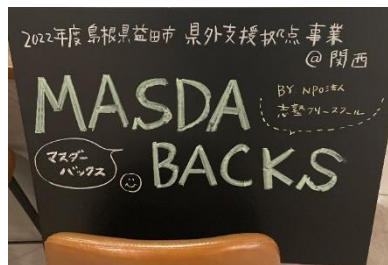 2022年度島根県益田市 県外支援拠点事業
@関西
MASDA
BACKS
BY NPO法人
志塾フリースクール
マスダー
バックス